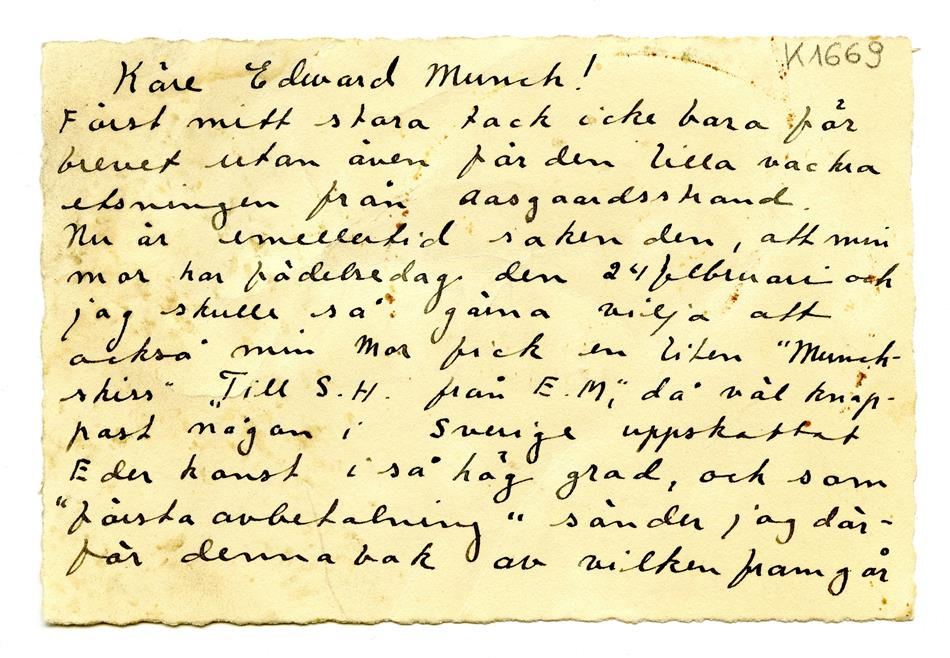 K1669
Käre Edward Munch!
Först mitt stora tack icke bara för
brevet utan även för den lilla vackra
etsningen från Aasgaardsstrand.
Nu är emellertid saken den, att min
mor har födelsedag den 24 februari och
jag skulle så gärna vilja att
också min Mor fick en liten "Munch-
skiss" "Till S.H. från E.M", då väl knap-
past någon i Sverige uppskattat
Eder konst i så hög grad, och som
"första avbetalning" sänder jag där-
för denna bok av vilken framgår